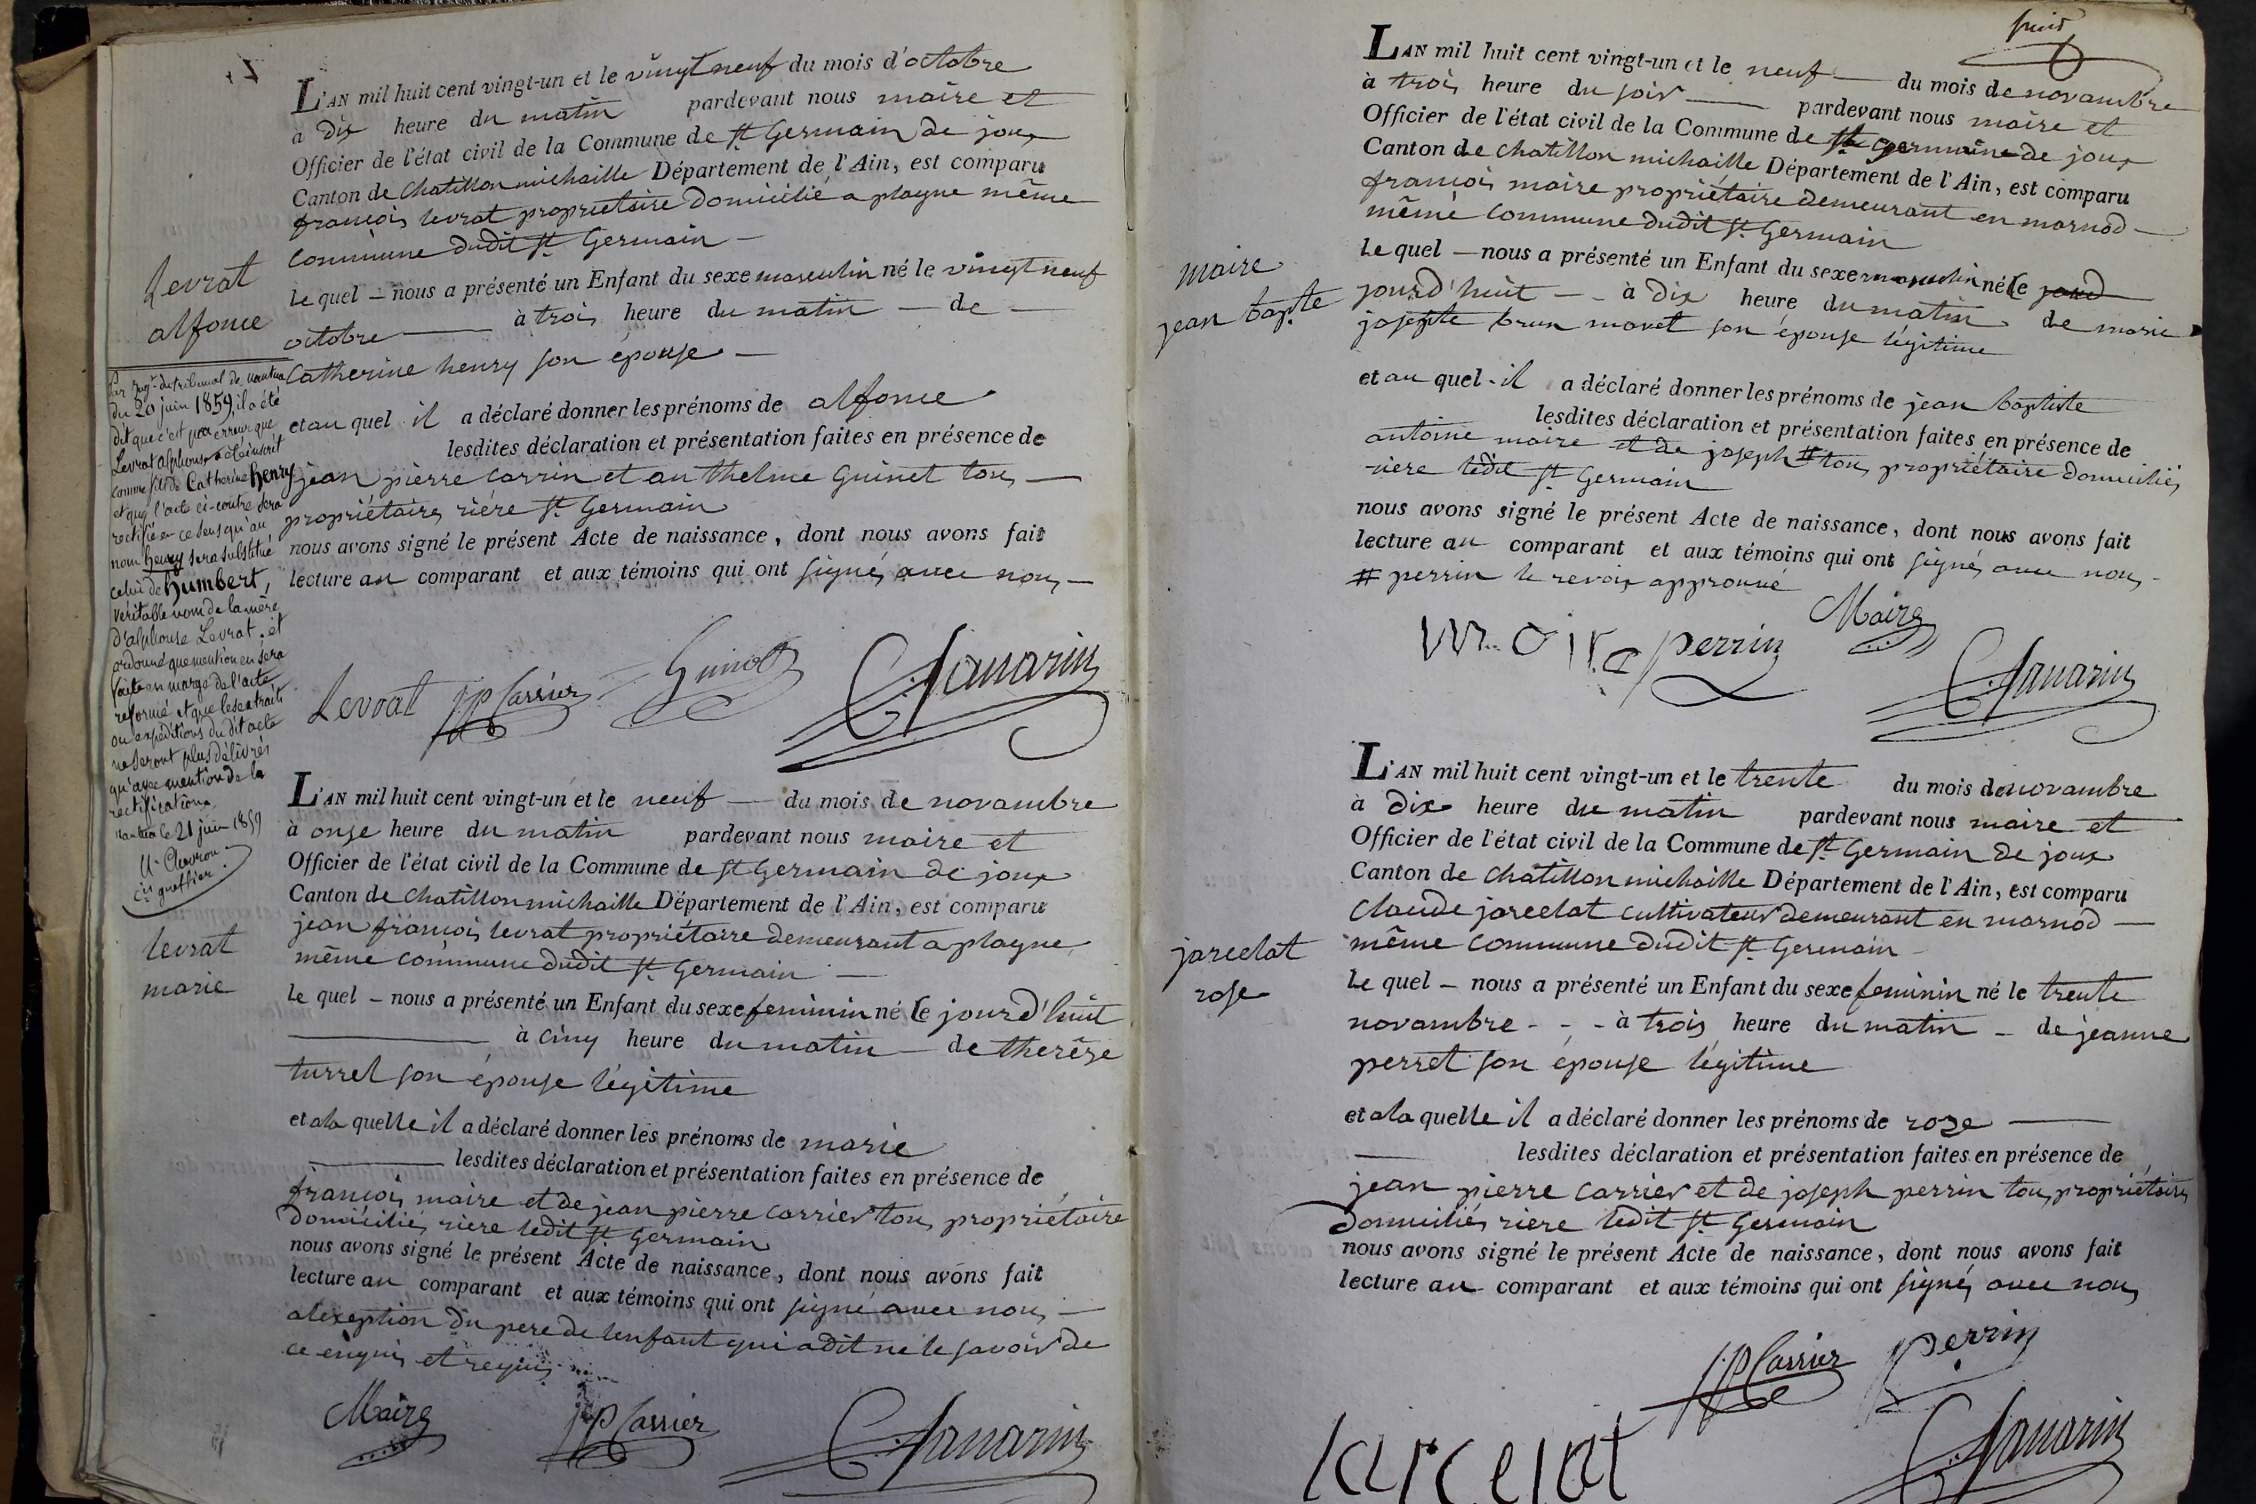 L'AN mil huit cent vingt-un et le vingt neuf du mois d'octobre
à dix heure du matin pardevant nous maire et
Officier de l'état civil de la Commune de St Germain de joux
Canton de chatillon michaille Département de l'Ain, est comparu
françois levrat proprietaire domicilié a plagne même
commune dudit St Germain —
Le quel — nous a présenté un Enfant du sexe masculin né le vingt neuf
octobre — à trois heure du matin — de —
Catherine henry son épouse —
et au quel il a déclaré donner les prénoms de alfonce
lesdites déclaration et présentation faites en présence de
jean pierre carrin et anthelme Guinet tous —
propriétaires riére St Germain
nous avons signé le présent Acte de naissance, dont nous avons fait
lecture au comparant et aux témoins qui ont signés avec nous —
Levrat
alfonce
Par jugt du tribunal de nantua
du 20 juin 1859, il a été
dit que c'est par erreur que
Levrat alphonse a été inscrit
comme fils de Catherine henry
et que l'acte ci-contre sera
rectifié en ce sens qu'au
nom henry sera substitué
celui de humbert,
véritable nom de la mère
d'alphonse Levrat, et
ordonné que mention en sera
faite en marge de l'acte
reformé et que les extraits
ou expéditions du dit acte
ne seront plus délivrés
qu'avec mention de la
rectification.
nantua le 21 juin 1859
greffier
Levrat JP Carrier Guinet Savarin
L'AN mil huit cent vingt-un et le neuf — du mois de novambre
à onze heure du matin pardevant nous maire et
Officier de l'état civil de la Commune de St Germain de joux
Canton de chatillon michaille Département de l'Ain, est comparu
jean françois levrat propriétaire demeurant a plagne
même commune dudit St Germain —
Le quel — nous a présenté un Enfant du sexe feminin né le jourd'huit
— à cinq heure du matin — de therèze
turrel son épouse légitime
et a la quelle il a déclaré donner les prénoms de marie
— lesdites déclaration et présentation faites en présence de
françois maire et de jean pierre carrier tous propriétaire
domiciliés riere ledit St Germain
nous avons signé le présent Acte de naissance, dont nous avons fait
lecture au comparant et aux témoins qui ont signé avec nous —
a lexeption du pere de lenfant qui a dit ne le savoir de
ce enquis et requis
levrat
marie
Maire JP Carrier Savarin
huit
L'AN mil huit cent vingt-un et le neuf — du mois de novambre
à trois heure du soir — pardevant nous maire et
Officier de l'état civil de la Commune de St germain de joux
Canton de chatillon michaille Département de l'Ain, est comparu
françois maire propriétaire demeurant en marnod —
même commune dudit St Germain
Le quel — nous a présenté un Enfant du sexe masculin né le jourd
jourd'huit — à dix heure du matin de marie
josephte brun mavet son épouse légitime
et au quel il a déclaré donner les prénoms de jean baptiste
lesdites déclaration et présentation faites en présence de
antoine maire et de joseph # tous propriétaire domiciliés
riere ledit St Germain
nous avons signé le présent Acte de naissance, dont nous avons fait
lecture au comparant et aux témoins qui ont signés avec nous —
# perrin le revoix approuvé
maire
jean bapte
maire perrin Maire Savarin
L'AN mil huit cent vingt-un et le trente du mois de novambre
à dix heure du matin pardevant nous maire et
Officier de l'état civil de la Commune de St Germain de joux
Canton de chatillon michaille Département de l'Ain, est comparu
Claude jarcelat cultivateur demeurant en marnod —
même commune dudit St Germain —
Le quel — nous a présenté un Enfant du sexe feminin né le trente
novambre - - - à trois heure du matin — de jeanne
perret son épouse légitime
et a la quelle il a déclaré donner les prénoms de roze —
— lesdites déclaration et présentation faites en présence de
jean pierre carrier et de joseph perrin tous propriétaires
domiciliés riere ledit St Germain
nous avons signé le présent Acte de naissance, dont nous avons fait
lecture au comparant et aux témoins qui ont signés avec nous
jarcelat
rose
JP Carrier perrin
jarcelat Savarin